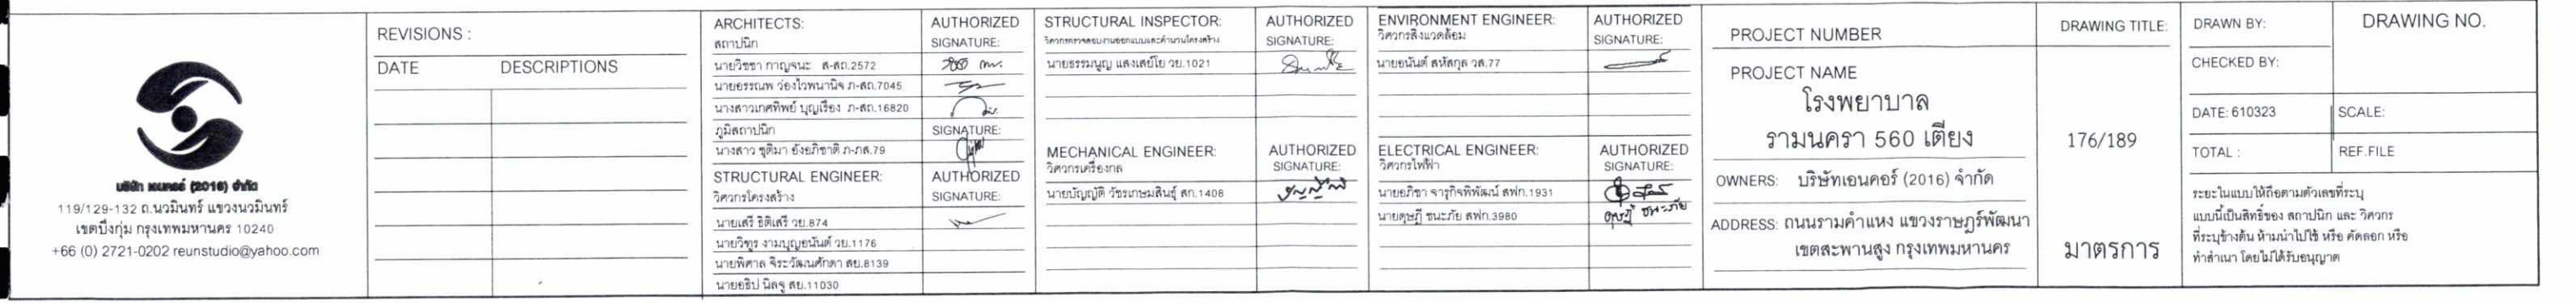 บริษัท เอนคอร์ (2016) จำกัด
119/129-132 ถ.นวมินทร์ แขวงนวมินทร์
เขตบึงกุ่ม กรุงเทพมหานคร 10240
+66 (0) 2721-0202 reunstudio@yahoo.com
REVISIONS :
DATE DESCRIPTIONS
ARCHITECTS: AUTHORIZED
สถาปนิก SIGNATURE:
นายวิชชา กาญจนะ ส-สถ.2572
นายอรรณพ ว่องไวพนานิจ ภ-สถ.7045
นางสาวเกศทิพย์ บุญเรือง ภ-สถ.16820
ภูมิสถาปนิก SIGNATURE:
นางสาว ชุติมา ยังอภิชาติ ภ-ภส.79
STRUCTURAL ENGINEER: AUTHORIZED
วิศวกรโครงสร้าง SIGNATURE:
นายเสรี ธิติเสรี วย.874
นายวิฑูร งามบุญอนันต์ วย.1176
นายพิศาล จิระวัฒนศักดา สย.8139
นายอธิป นิลจู สย.11030
STRUCTURAL INSPECTOR: AUTHORIZED
วิศวกรตรวจสอบงานออกแบบและคำนวนโครงสร้าง SIGNATURE:
นายธรรมนูญ แสงเสย์โย วย.1021
MECHANICAL ENGINEER: AUTHORIZED
วิศวกรเครื่องกล SIGNATURE:
นายบัญญัติ วัชรเกษมสินธุ์ สก.1408
ENVIRONMENT ENGINEER: AUTHORIZED
วิศวกรสิ่งแวดล้อม SIGNATURE:
นายอนันต์ สหัสกุล วส.77
ELECTRICAL ENGINEER: AUTHORIZED
วิศวกรไฟฟ้า SIGNATURE:
นายอภิชา จารุกิจพิพัฒน์ สฟก.1931
นายดุษฎี ชนะภัย สฟก.3980
ดุษฎี ชนะภัย
PROJECT NUMBER
PROJECT NAME
โรงพยาบาล
รามนครา 560 เตียง
OWNERS: บริษัทเอนคอร์ (2016) จำกัด
ADDRESS: ถนนรามคำแหง แขวงราษฎร์พัฒนา
เขตสะพานสูง กรุงเทพมหานคร
DRAWING TITLE:
176/189
มาตรการ
DRAWN BY: DRAWING NO.
CHECKED BY:
DATE: 610323 SCALE:
TOTAL : REF.FILE
ระยะในแบบให้ถือตามตัวเลขที่ระบุ
แบบนี้เป็นสิทธิ์ของ สถาปนิก และ วิศวกร
ที่ระบุข้างต้น ห้ามนำไปใช้ หรือ คัดลอก หรือ
ทำสำเนา โดยไม่ได้รับอนุญาต